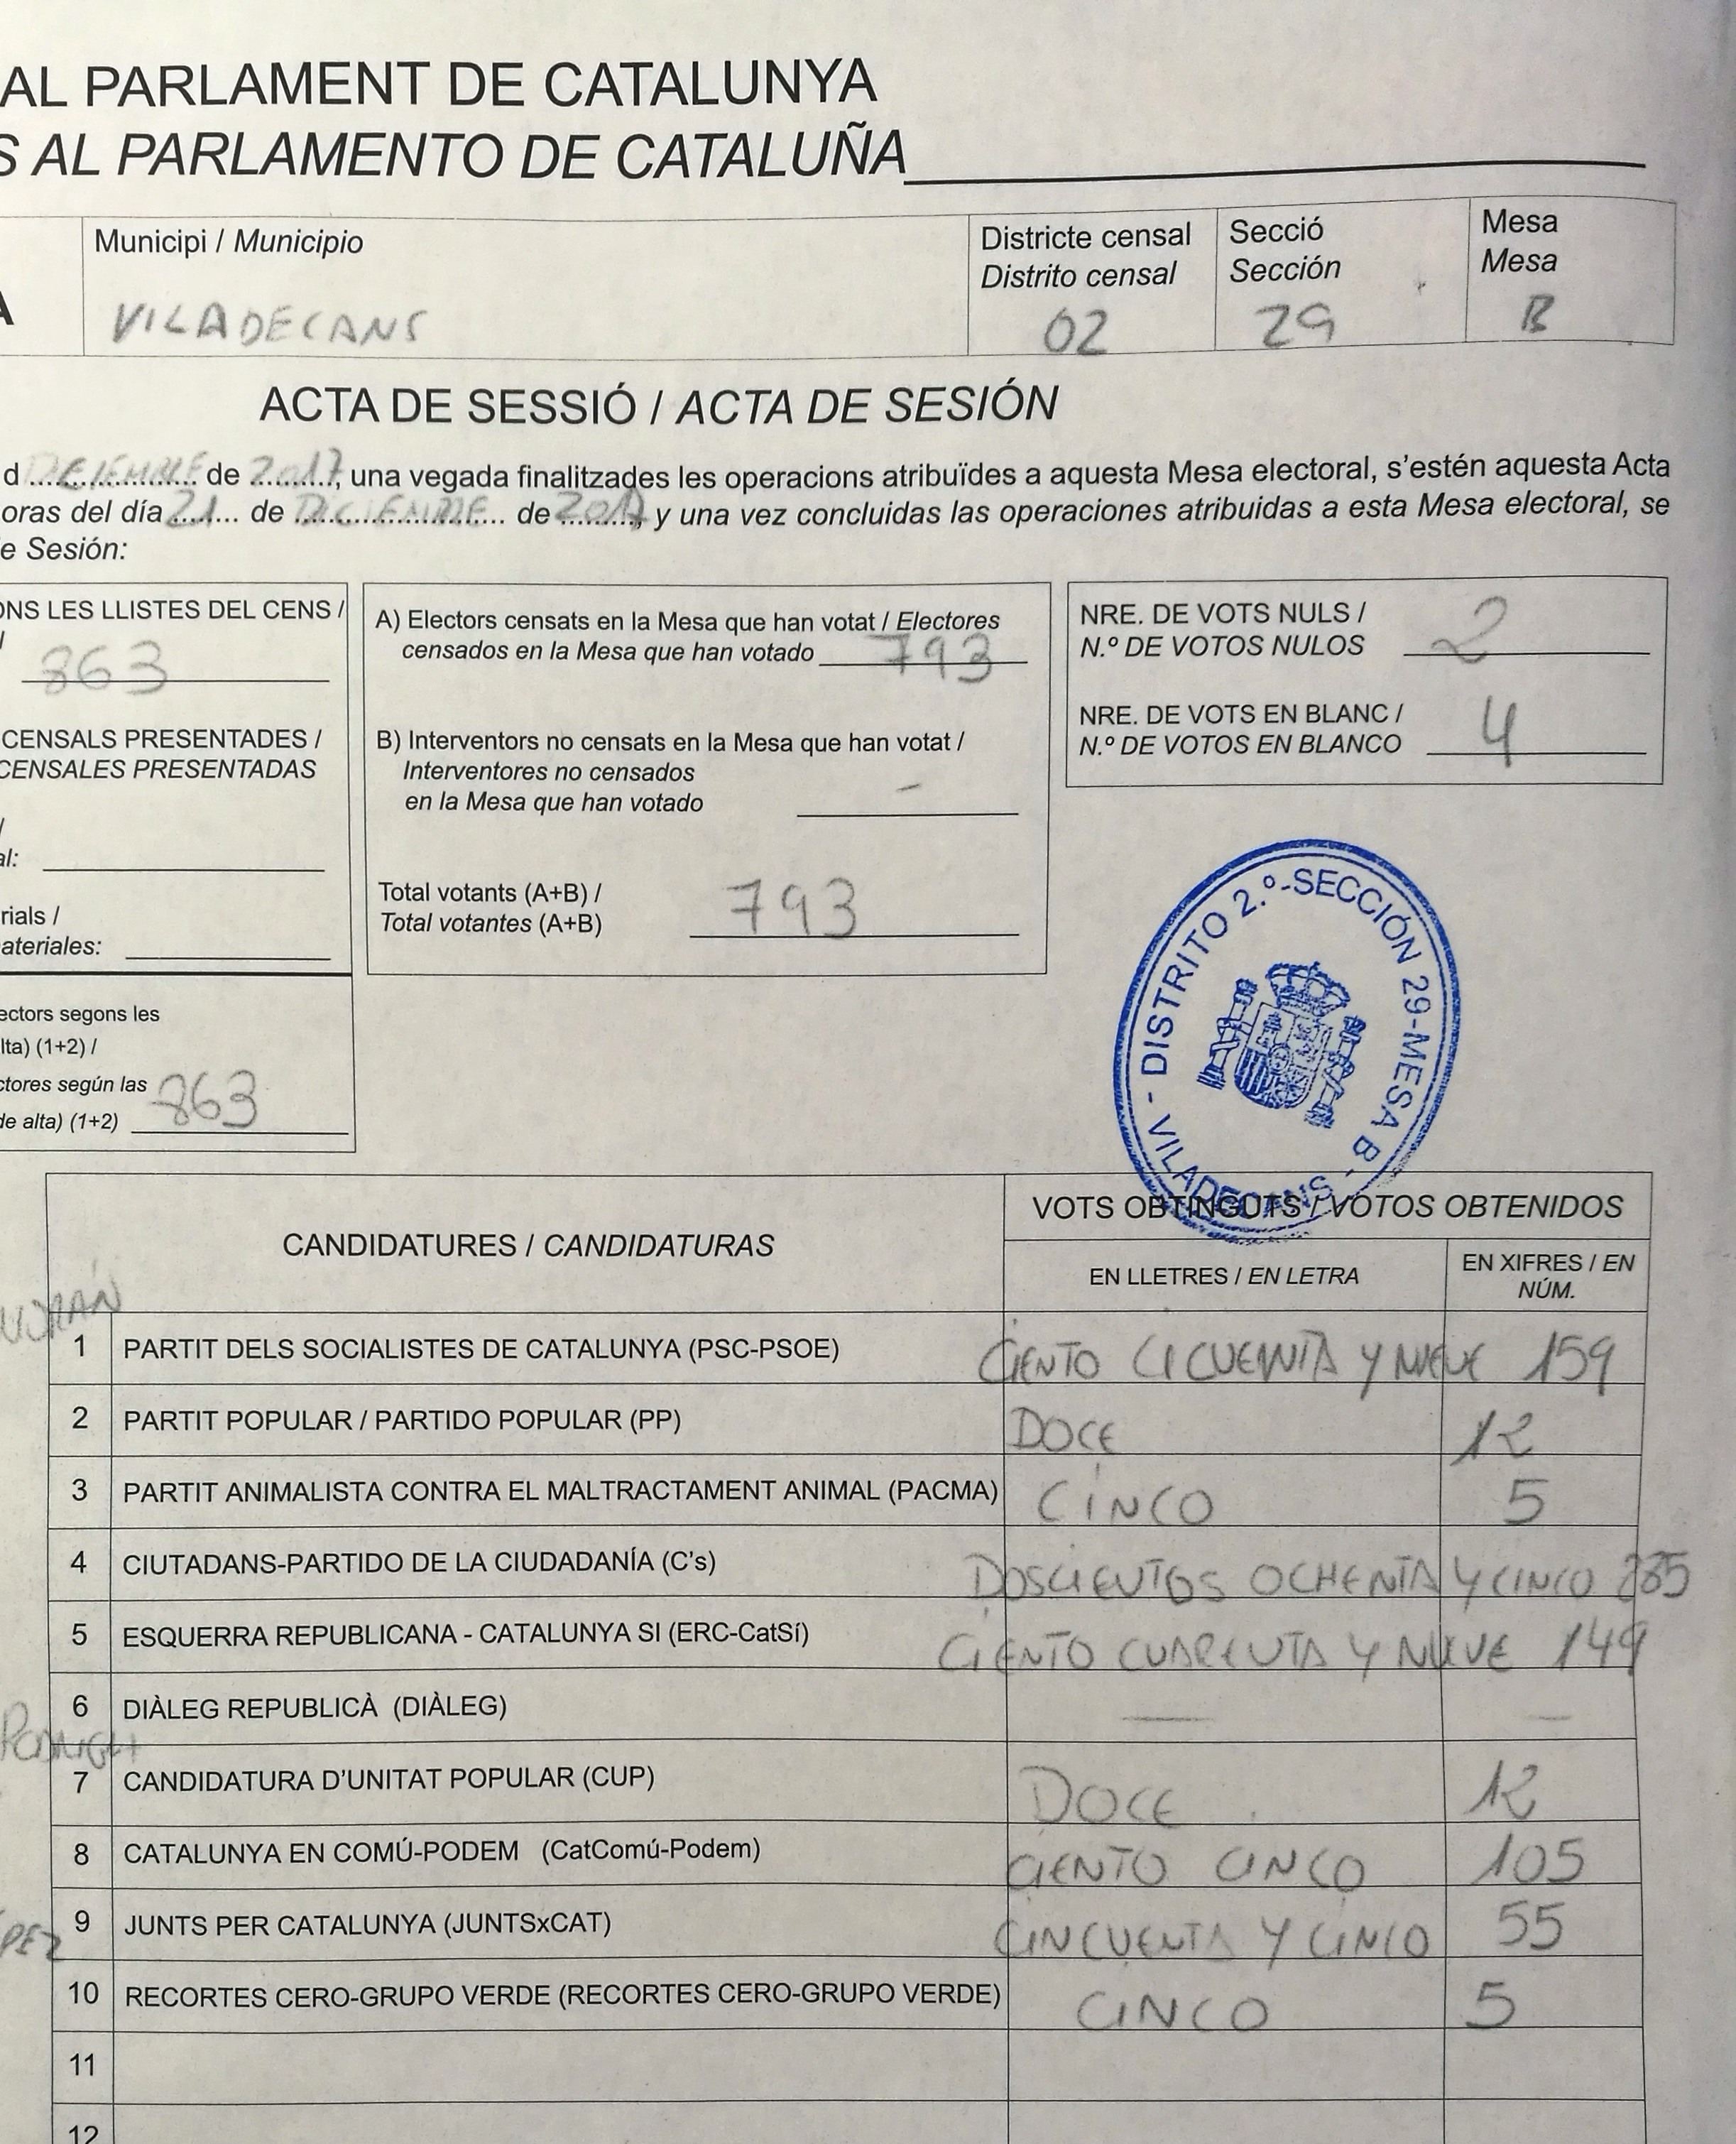 AL PARLAMENT DE CATALUNYA
S AL PARLAMENTO DE CATALUÑA
A
Municipi / Municipio
VILADECANS
Districte censal
Distrito censal
02
Secció
Sección
29
Mesa
Mesa
B
ACTA DE SESSIÓ / ACTA DE SESIÓN
d DICIEMBRE de 2017, una vegada finalitzades les operacions atribuïdes a aquesta Mesa electoral, s'estén aquesta Acta
oras del día 21 de DICIEMBRE de 2017, y una vez concluidas las operaciones atribuidas a esta Mesa electoral, se
e Sesión:
ONS LES LLISTES DEL CENS /
/
863
CENSALS PRESENTADES /
CENSALES PRESENTADAS
/
al:
rials /
ateriales:
ectors segons les
lta) (1+2) /
ctores según las
de alta) (1+2) 863
A) Electors censats en la Mesa que han votat / Electores
censados en la Mesa que han votado 793
B) Interventors no censats en la Mesa que han votat /
Interventores no censados
en la Mesa que han votado -
Total votants (A+B) /
Total votantes (A+B) 793
NRE. DE VOTS NULS /
N.º DE VOTOS NULOS 2
NRE. DE VOTS EN BLANC /
N.º DE VOTOS EN BLANCO 4
- DISTRITO 2.º-SECCIÓN 29-MESA B - VILADECANS
CANDIDATURES / CANDIDATURAS
VOTS OBTINGUTS / VOTOS OBTENIDOS
EN LLETRES / EN LETRA
EN XIFRES / EN
NÚM.
1 PARTIT DELS SOCIALISTES DE CATALUNYA (PSC-PSOE) CIENTO CICUENTA Y NUEVE 159
2 PARTIT POPULAR / PARTIDO POPULAR (PP) DOCE 12
3 PARTIT ANIMALISTA CONTRA EL MALTRACTAMENT ANIMAL (PACMA) CINCO 5
4 CIUTADANS-PARTIDO DE LA CIUDADANÍA (C's) DOSCIENTOS OCHENTA Y CINCO 285
5 ESQUERRA REPUBLICANA - CATALUNYA SI (ERC-CatSí) CIENTO CUARENTA Y NUEVE 149
6 DIÀLEG REPUBLICÀ (DIÀLEG) — —
7 CANDIDATURA D'UNITAT POPULAR (CUP) DOCE 12
8 CATALUNYA EN COMÚ-PODEM (CatComú-Podem) CIENTO CINCO 105
9 JUNTS PER CATALUNYA (JUNTSxCAT) CINCUENTA Y CINCO 55
10 RECORTES CERO-GRUPO VERDE (RECORTES CERO-GRUPO VERDE) CINCO 5
11
12